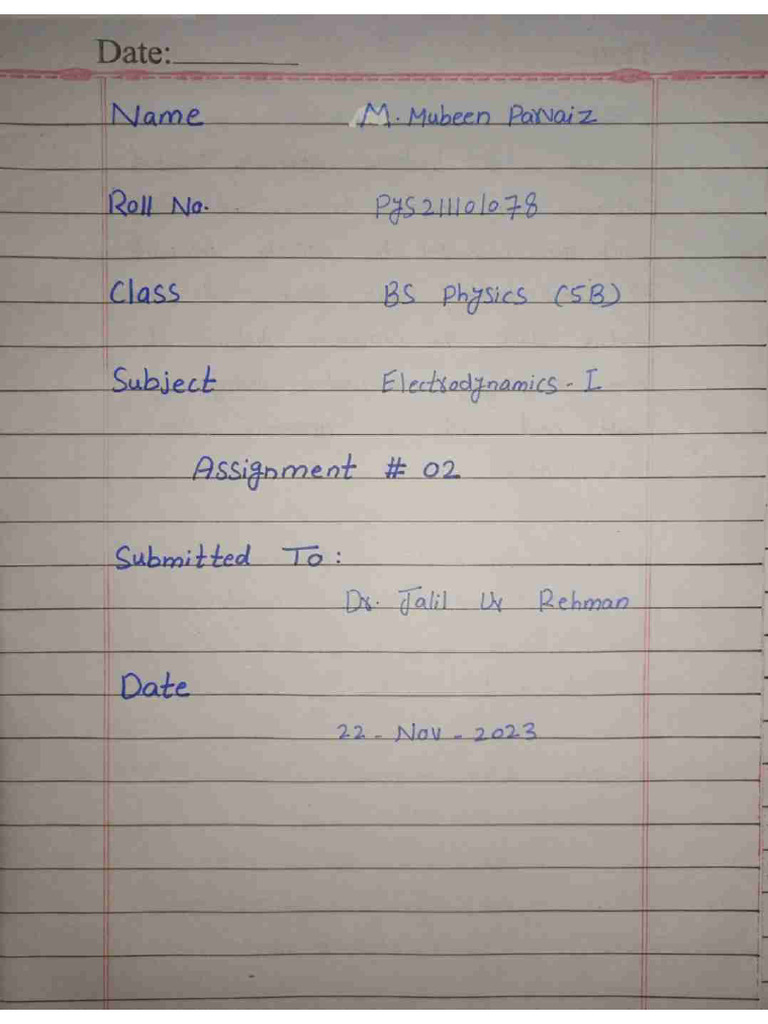 Date:
Name M. Mubeen Parvaiz
Roll No. PYS211101078
Class BS Physics (5B)
Subject Electrodynamics - I
Assignment # 02
Submitted To :
Dr. Jalil Ur Rehman
Date
22 - Nov - 2023